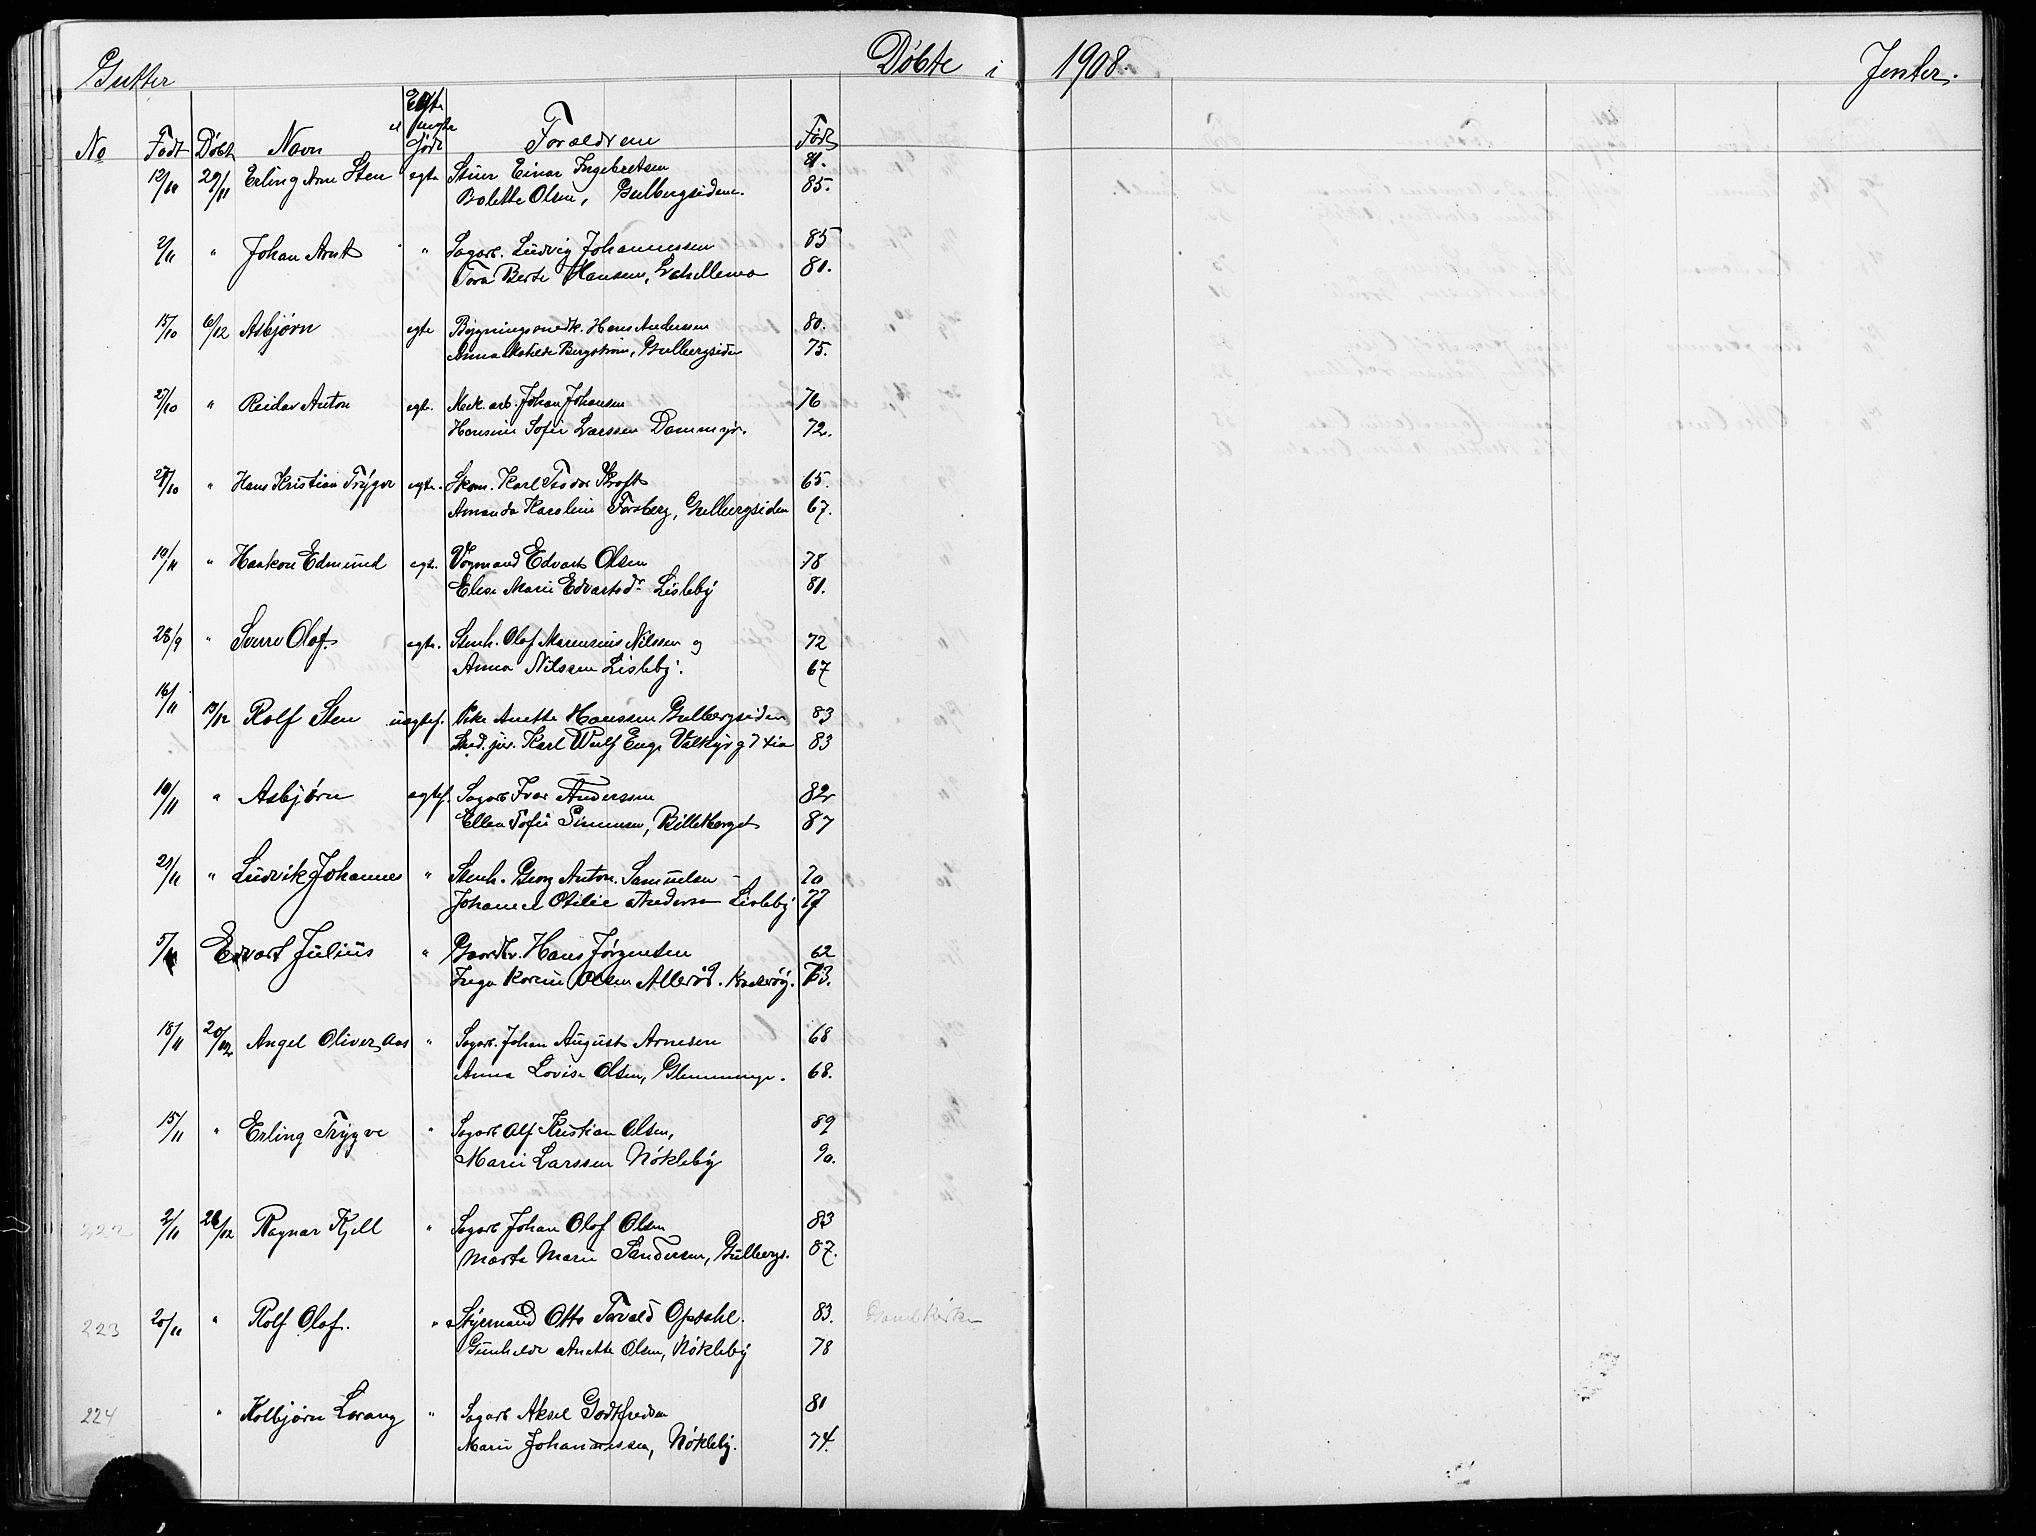 Gutter Døbte i 1908. Jenter.
No Født Døbt Navn Egte el. uegte født Forældrene Født
12/10 29/11 Erling Arne Sten egte Stuer Einar Ingebretsen 81.
Bolette Olsen, Gulbergsiden. 85.
2/11 " Johan Arnt " Sagarb. Ludvig Johannessen 85
Tora Berte Hansen, Labellemo 81.
15/10 6/12 Asbjørn egte Bygningssnedk. Hans Anderssen 80.
Anna Matilde Bergstrøm, Gulbergsiden 75.
27/10 " Reidar Anton egte. Mek. arb. Johan Johansen 76
Hansine Sofie Larssen Dammyr. 72.
29/10 " Hans Kristian Trygve egte. Skom. Karl Teodor Kroft 65.
Amanda Karoline Forsberg, Gulbergsiden 67.
19/11 " Haakon Edmund egte. Vognmand Edvart Olsen 78
Elise Marie Edvartsdr Lisleby 81.
28/9 " Sverre Olaf. egte. Stenh. Olaf Marensius Nilssen og 72
Anna Nilssen Lisleby. 67
16/11 13/12 Rolf Sten uegtef. Pike Anette Hanssen Gulbergsiden 83
Karl Wulf Enge Valkyrg 7 83
10/11 " Asbjørn egtef. Sagarb Ivar Anderssen 82
Ellen Sofie Simensen, Billetberget 87
21/11 " Ludvik Johannes " Stenh. Georg Anton Samuelsen 70
Johanne Otilie Lisleby 77
5/11 Edvart Julius " Gaardbr. Hans Jørgensen 62
Inga Karine Olsen Allerød. Kraakerøy. 73.
18/11 20/12 Angel Oliver Aas " Sagarb. Johan August Arnesen 68
Anna Lovise Olsen, Glemminge. 68.
15/11 " Erling Trygve " Sagarb Alf Kristian Olsen, 89
Marie Larssen Nøkleby 90.
222 2/11 26/12 Ragnar Kjell " Sagarb Johan Olaf Olsen 83
Marta Marie Sandersen, Gulbergs. 87.
223 20/11 " Rolf Olaf. " Styrmand Otto Torvald Opsahl. 83. Gamlekirke
Gunhilde Anette Olsen, Nøkleby 78
224 " Kolbjørn Lorang " Sagarb Aksel Godtfredsen 81
Marie Johannessen, Nøkleby. 74.